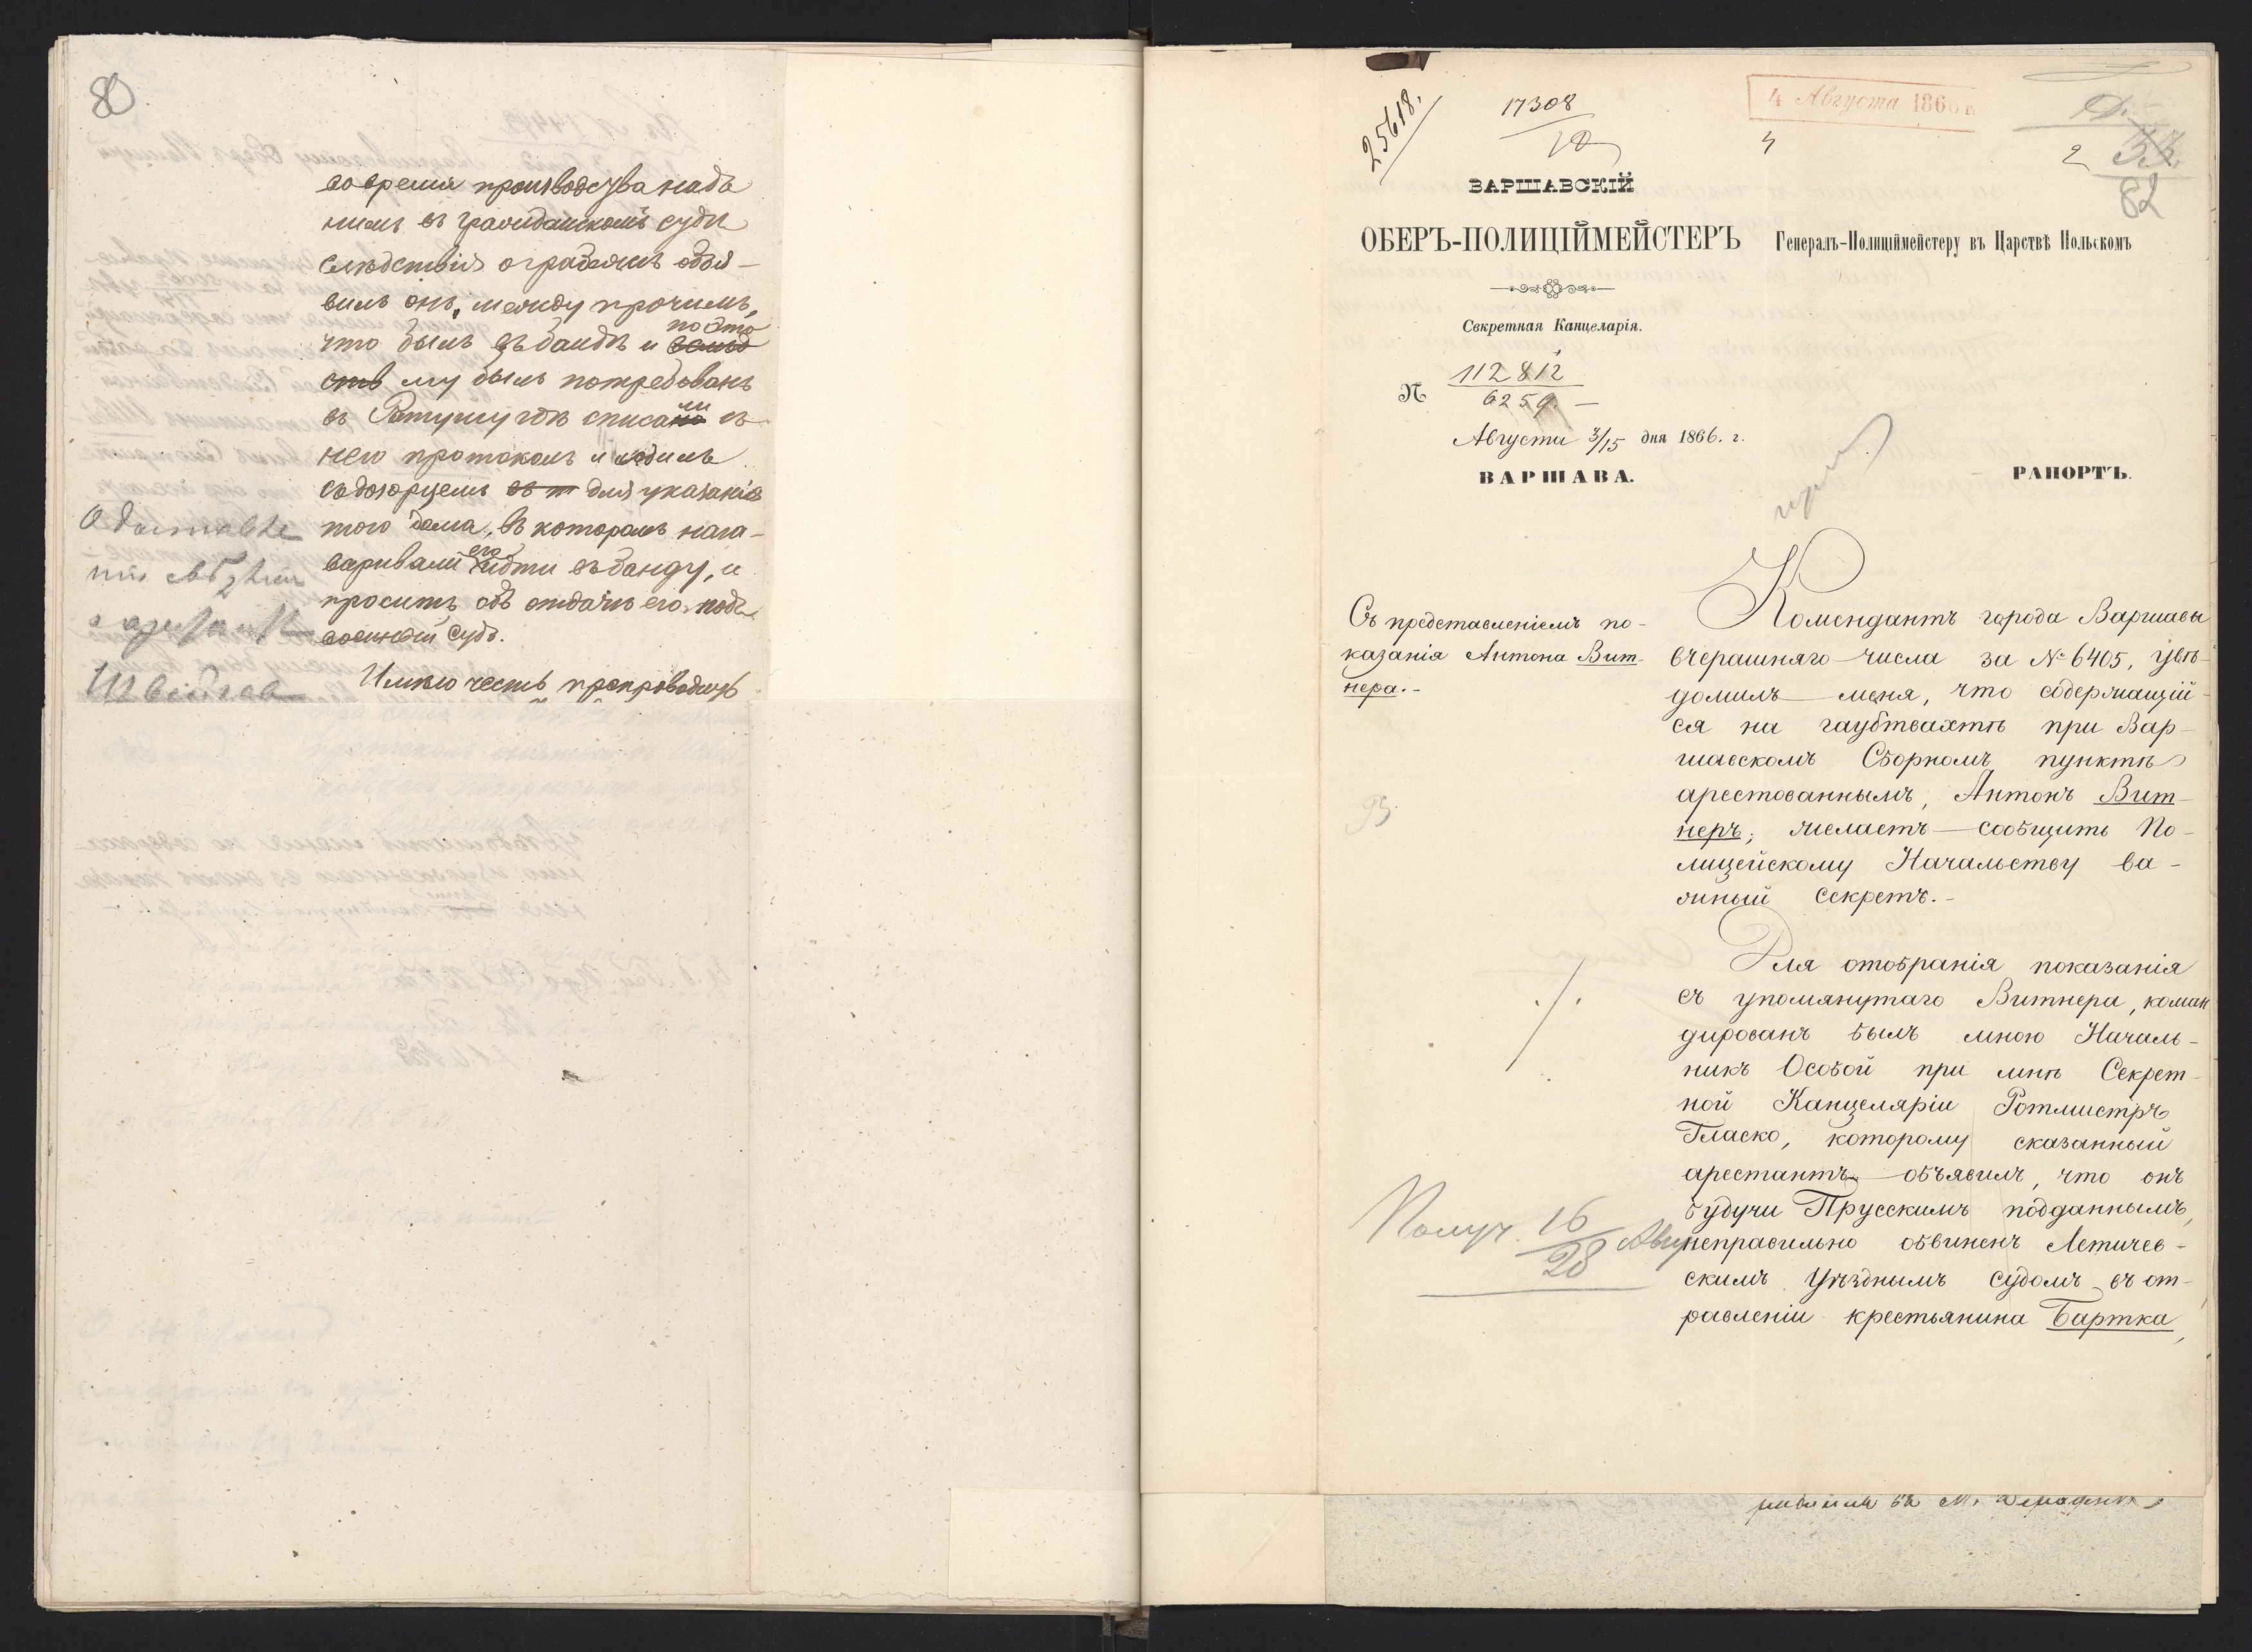 80
во время производства надъ
нимъ въ гражданскомъ судѣ
слѣдствія о грабежѣ объя-
вилъ онъ, между прочимъ,
что былъ въ бандѣ и
поэто
му былъ потребованъ
въ Ратушу гдѣ списали съ
него протоколъ и водилъ
съ дозорцемъ для указанія
того дома, въ которомъ нага-
варивали его идти въ банду, и
проситъ объ отдачѣ его подъ
военный судъ.
Имѣю честь препроводить
О доставле
нии
Швейцов
25618.
17308
4 Августа 1866
4
2
82
ВАРШАВСКІЙ
ОБЕРЪ-ПОЛИЦІЙМЕЙСТЕРЪ
Генералъ-Полиціймейстеру въ Царствѣ Польскомъ
Секретная Канцеларія.
№ 112812
6259.
Августа 3/15 дня 1866. г.
ВАРШАВА.
РАПОРТЪ.
Съ представленіемъ по-
казанія Антона Вит-
нера.-
Комендантъ города Варшавы
вчерашняго числа за № 6405, увѣ-
домилъ меня, что содержащій-
ся на гаубтвахтѣ при Вар-
шавскомъ Сборномъ пунктѣ
арестованнымъ, Антонъ Вит-
неръ, желаетъ сообщить По-
лицейскому Начальству ва-
жный секретъ.-
Для отобранія показанія
съ упомянутаго Витнера, коман
дированъ былъ мною Началь-
никъ Особой при мнѣ Секрет-
ной Канцеляріи Ротмистръ
Гласко, которому сказанный
арестантъ объявилъ, что онъ
будучи Прусскимъ подданнымъ,
неправильно обвиненъ Летичев-
скимъ Уѣзднымъ судомъ въ от-
равленіи крестьянина Бартка,
95
Получ. 16/28 Авг